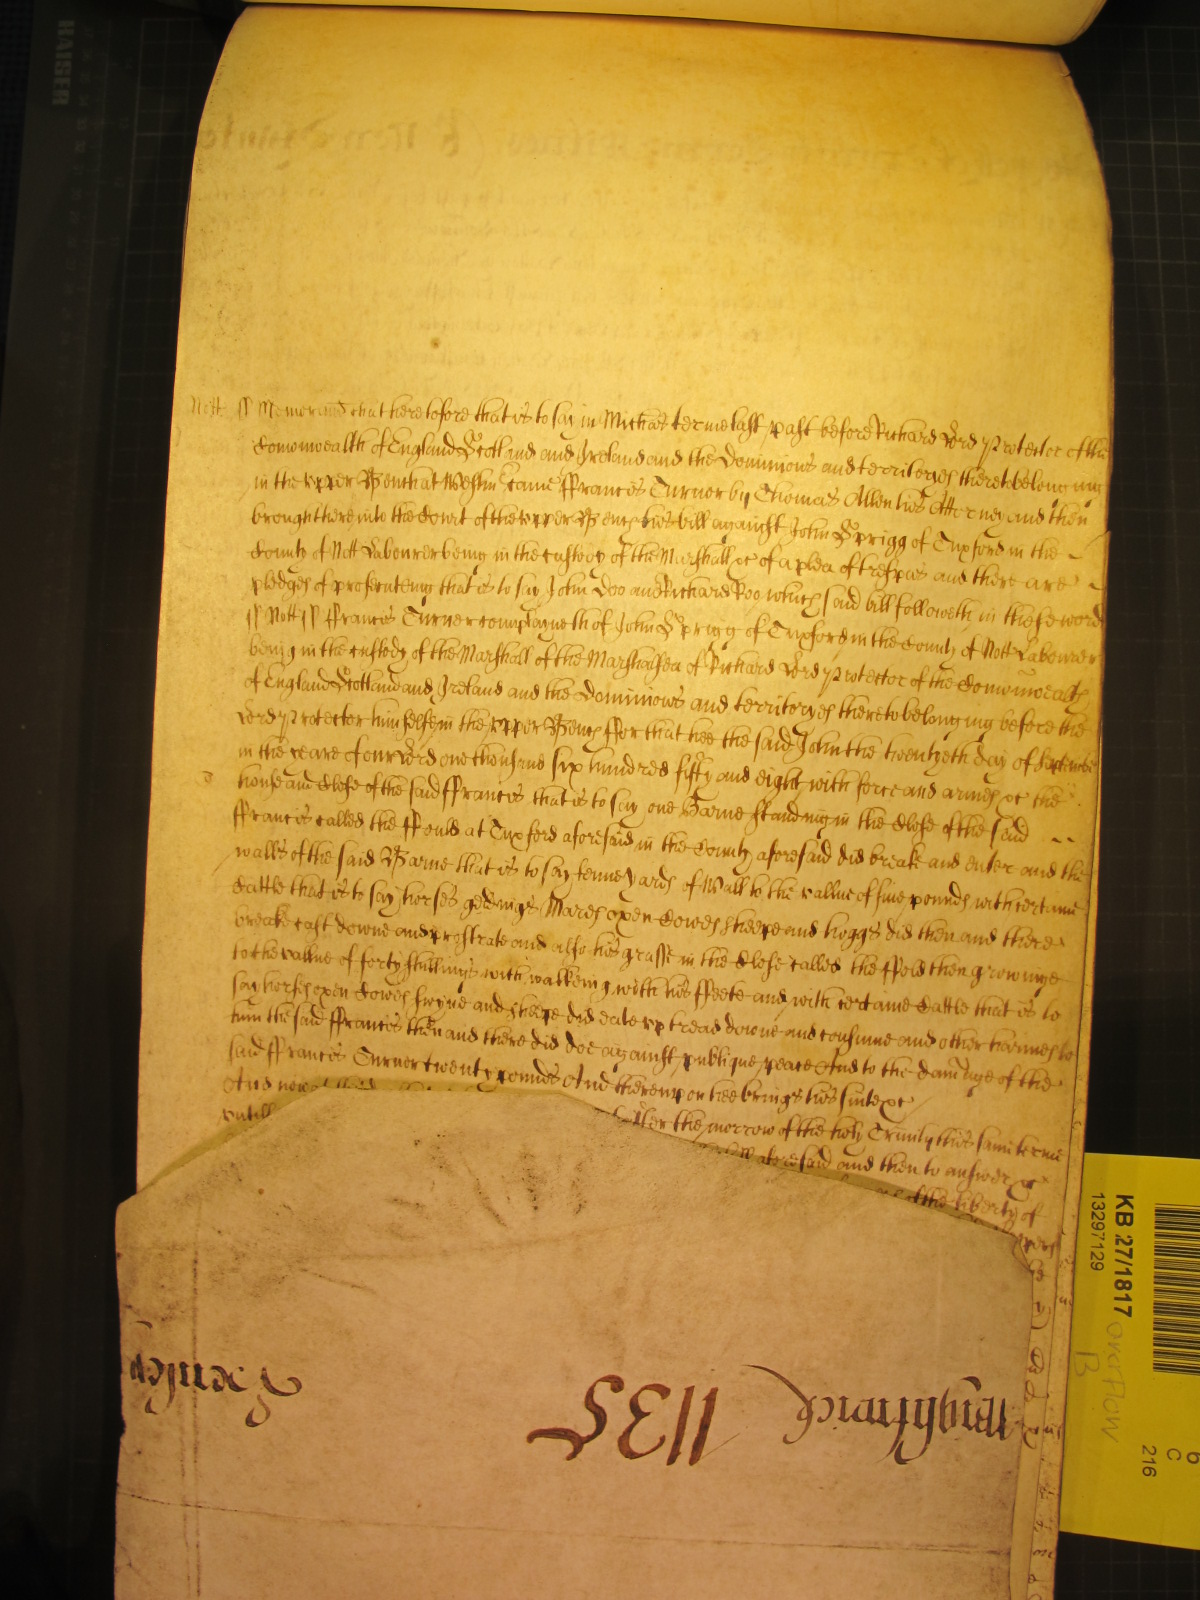 Nott ss Memorand that heretofore that is to say in Michās terme last past before Richard Lord Protector of the
Comonwealth of England Scotland and Ireland and the Dominions and territoryes thereto belonging
in the upper Bench at Westm came ffrancis Turner by Thomas Allen his Attorney and then
brought here into the Court of the upper Bench his bill against John Sprigg of Tuxford in the
County of Nott Labourer being in the custody of the Marshall &c of a plea of trespas and there are
pledges of prosecuteing that is to say John Doo and Richard Roo which said bill followeth in these words
ss Nott ss ffrancis Turner complayneth of John Sprigg of Tuxford in the County of Nott Labourer
being in the custody of the Marshall of the Marshalsea of Richard Lord Protector of the Comonwealth
of England Scotland and Ireland and the Dominions and territoryes thereto belonging before the
Lord Protector himselfe in the upper Bench ffor that hee the said John the twentyeth day of September
in the yeare of our Lord one thousand six hundred fifty and eight with force and armes &c the
house and Close of the said ffrancis that is to say one Barne standing in the Close of the said
ffrancis called the ffeild at Tuxford aforesaid in the County aforesaid did breake and enter and the
walls of the said Barne that is to say tenne yards of Wall to the vallue of five pounds with certaine
Cattle that is to say horses geldings Mares oxen Cowes sheepe and hoggs did then and there
breake cast downe and prostrate and also his grasse in the Close called the ffeild then growinge
to the vallue of forty shillings with walkeing with his ffeete and with certaine Cattle that is to
say horses oxen Cowes swyne and sheepe did eate up tread downe and consume and other harmes to
him the said ffrancis then and there did doe against publique peace And to the damage of the
said ffrancis Turner twenty pounds And thereupon hee brings his suite &c
And now
untill after the morrow of the holy Trinity this same terme
aforesaid and then to answer &c
of the liberty of
Wightwick 1135
HAISER
KB 27/1817
13297129
overflow
B
6
C
216